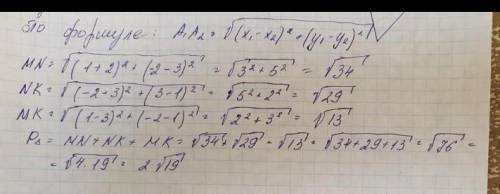 По формуле: A₁A₂ = √((x₁-x₂)² + (y₁-y₂)²)
MN = √((1+2)² + (-2-3)²) = √(3² + 5²) = √34
NK = √((-2-3)² + (3-1)²) = √(5² + 2²) = √29
MK = √((1-3)² + (-2-1)²) = √(2² + 3²) = √13
P△ = MN + NK + MK = √34 + √29 + √13 = √(34+29+13) = √76 =
= √(4·19) = 2√19